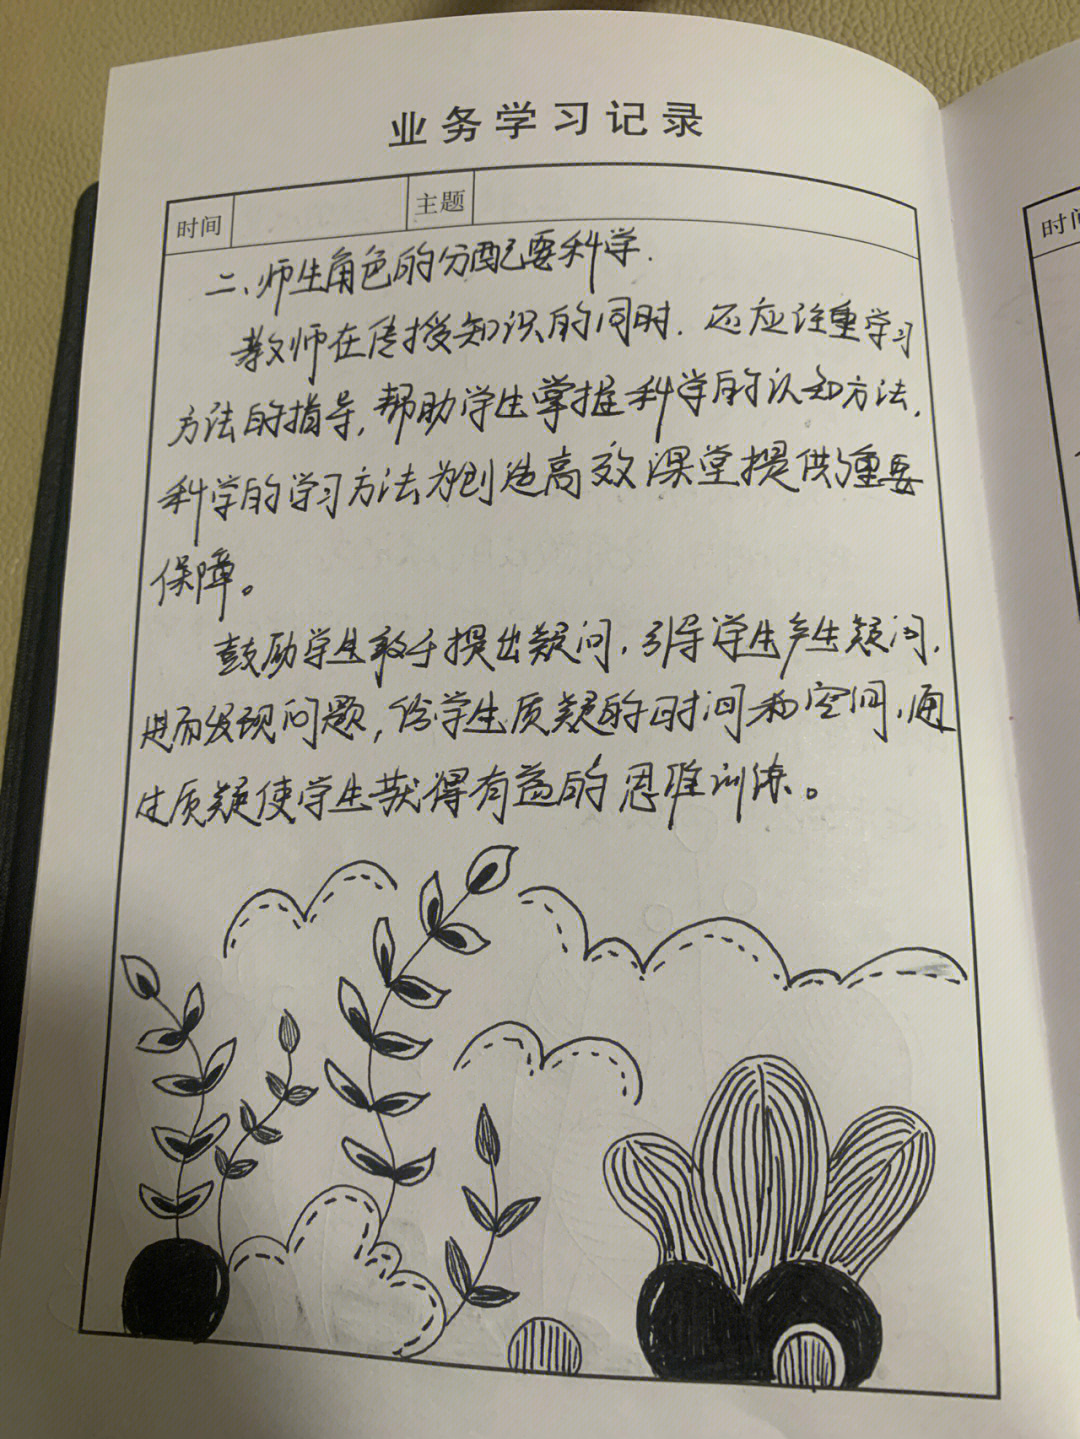 业务学习记录
时间 主题
二、师生角色的分配要科学.
教师在传授知识的同时.还应注重学习
方法的指导,帮助学生掌握科学的认知方法,
科学的学习方法为创造高效课堂提供了重要
保障。
鼓励学生敢于提出疑问,引导学生产生疑问,
进而发现问题,给学生质疑的时间和空间,通
生质疑使学生获得有益的思维训练。
时间